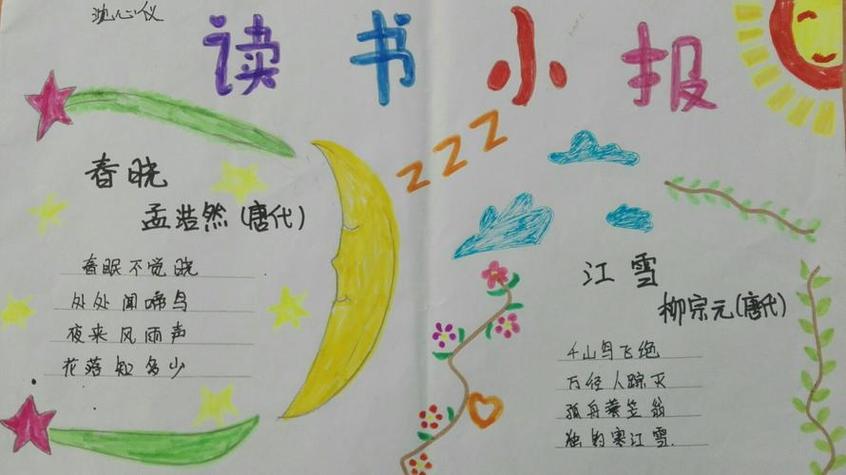 沈心仪
读书小报
zzz
春晓
孟浩然(唐代)
春眠不觉晓
处处闻啼鸟
夜来风雨声
花落知多少
江雪
柳宗元(唐代)
千山鸟飞绝
万径人踪灭
孤舟蓑笠翁
独钓寒江雪.